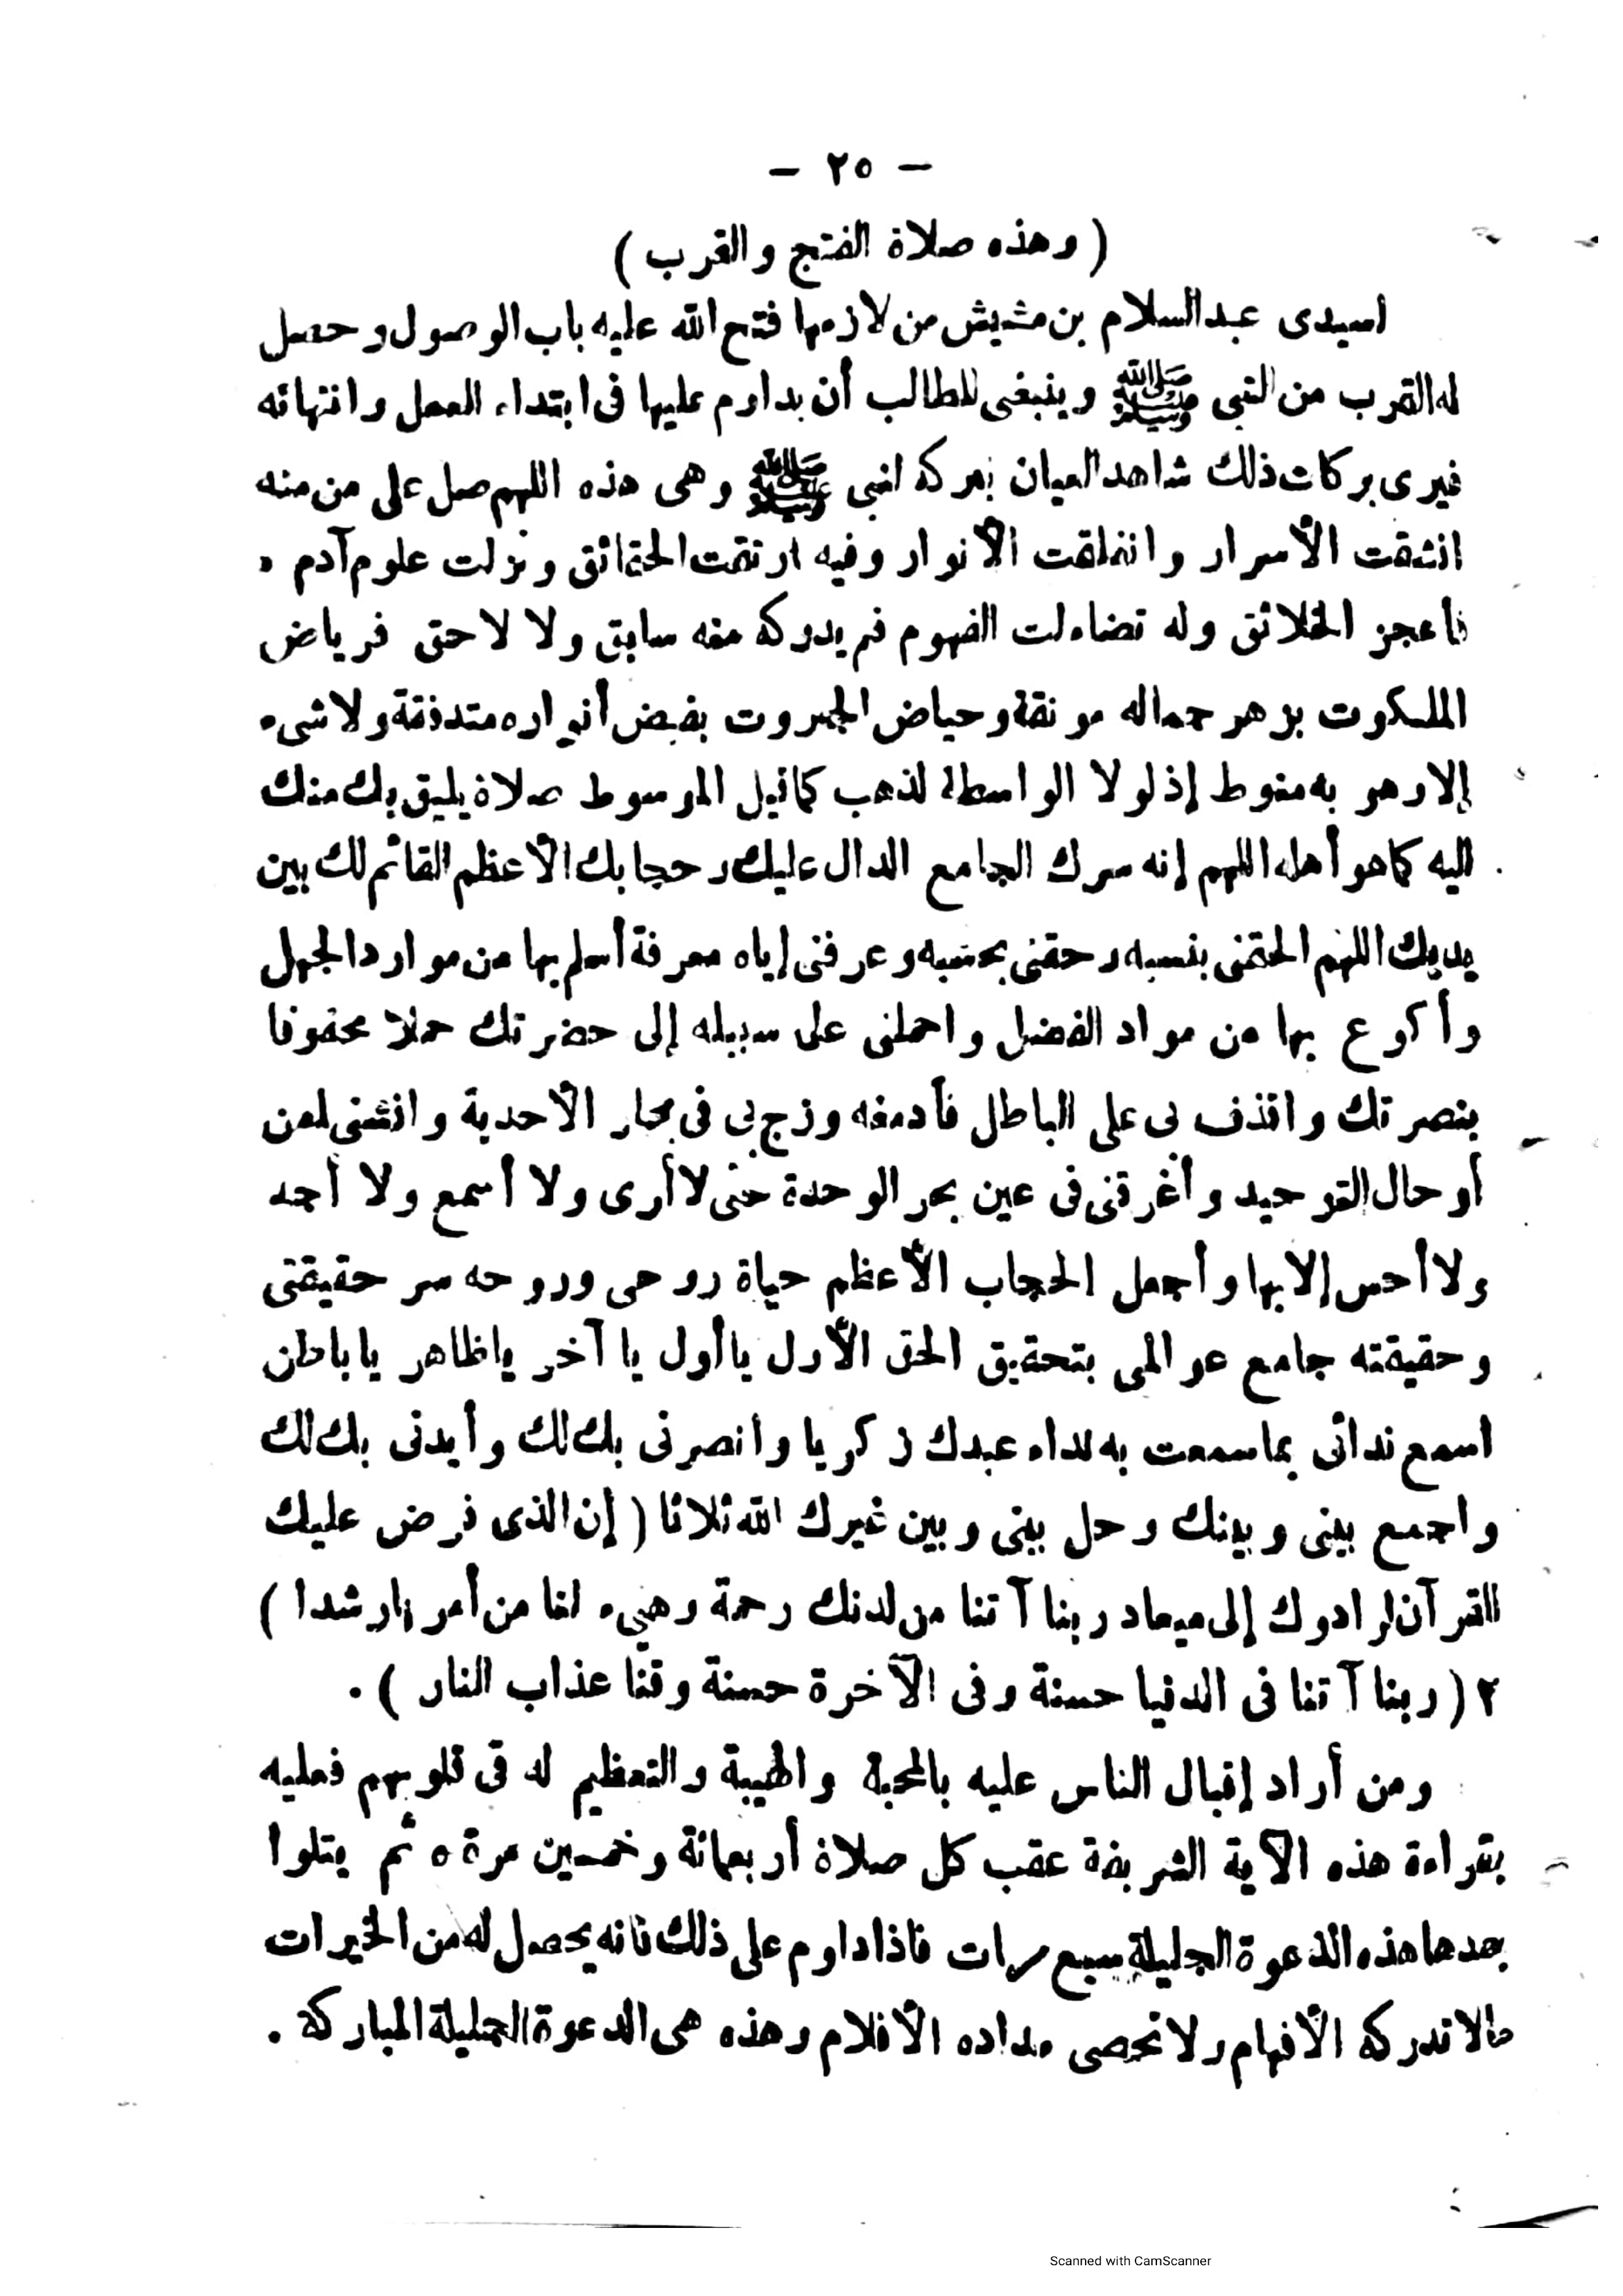 — ٢٥ —
( وهذه صلاة الفتح والقرب )
لسيدى عبد السلام بن مشيش من لازمها فتح الله عليه باب الوصول وحصل
له القرب من النبى ﷺ وينبغى للطالب أن يداوم عليها فى ابتداء العمل وانتهائه
فيرى بركات ذلك شاهد العيان ببركة النبى ﷺ وهى هذه اللهم صل على من منه
انشقت الأسرار وانفلقت الأنوار وفيه ارتقت الحقائق ونزلت علوم آدم .
فأعجز الخلائق وله تضاءلت الفهوم فم يدركه منه سابق ولا لاحق فرياض
الملكوت بزهر جماله مونقة وحياض الجبروت بفيض أنواره متدفقة ولا شىء
إلا وهو به منوط إذ لولا الواسطة لذهب كما قيل الموسوط صلاة يليق بك منك
اليه كما هو أهله اللهم إنه سرك الجامع الدال عليك وحجابك الأعظم القائم لك بين
يديك اللهم الحقنى بنسبه وحققنى بحسبه وعرفنى إياه معرفة أسلم بها من موارد الجهل
وأكوع بها من مواد الفضل واحملنى على سبيله إلى حضرتك حملا محفوفا
بنصرتك واقذف بى على الباطل فأدمغه وزج بى فى بحار الأحدية وانشلنى من
أوحال التوحيد وأغرقنى فى عين بحر الوحدة حتى لا أرى ولا أسمع ولا أجد
ولا أحس إلا بها وأجعل الحجاب الأعظم حياة روحى وروحه سر حقيقتى
وحقيقته جامع عوالمى بتحقيق الحق الأول يا أول يا آخر ياظاهر ياباطن
اسمع ندائى بما سمعت به نداء عبدك زكريا وانصرنى بك لك وأيدنى بك لك
واجمع بينى وبينك وحل بينى وبين غيرك الله ثلاثا ( إن الذى فرض عليك
القرآن لرادوك إلى ميعاد ربنا آتنا من لدنك رحمة وهيىء لنا من أمرنا رشدا )
٢ ( ربنا آتنا فى الدنيا حسنة وفى الآخرة حسنة وقنا عذاب النار ) .
ومن أراد إقبال الناس عليه بالمحبة والهيبة والتعظيم له فى قلوبهم فعليه
بقراءة هذه الآية الشريفة عقب كل صلاة أربعمائة وخمسين مرة ٥ ثم يتلوا
بعدها هذه الدعوة الجليلة سبع مرات فاذا داوم على ذلك فانه يحصل له من الخيرات
مالا تدركه الأفهام ولا تحصى مداده الأقلام وهذه هى الدعوة الجليلة المباركة .
Scanned with CamScanner